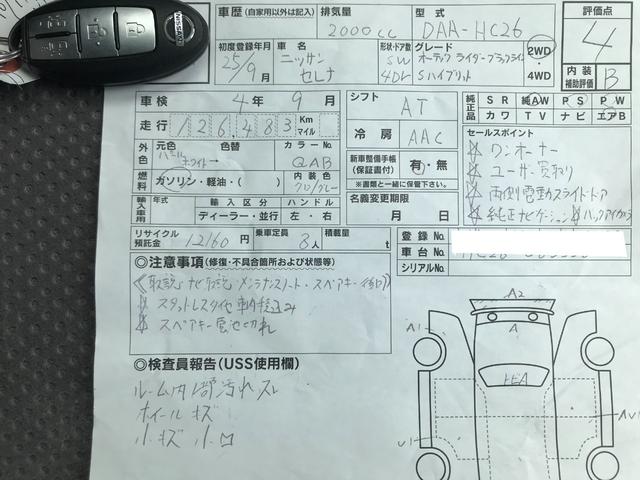 NISSAN
車歴 (自家用以外は記入)
排気量 2000cc
型式 DAA-HC26
評価点 4
初度登録年月 25/9月
車名 ニッサン セレナ
形状・ドア数 SW 4Dr
グレード オーテック ライダーブラックライン
Sハイブリット
2WD・4WD
内装補助評価 B
車検 4年 9月
シフト AT
純正品 SR 純AW PS PW
カワ TV ナビ エアB
走行 126,483 Km マイル
冷房 AAC
セールスポイント
ワンオーナー
ユーザー買取り
両側電動スライドドア
純正ナビゲーション バックアイカメラ
外色 元色 パールホワイト 色替
カラーNo. QAB
新車整備手帳(保証書付) 有・無
※書類と一緒に保管下さい。
燃料 ガソリン・軽油・( )
内装色 クロ/グレー
輸入車用 年式 輸入区分 ディーラー・並行 ハンドル 左・右
名義変更期限 月 日
リサイクル預託金 12160円
乗車定員 8人
積載量 t
登録No.
車台No.
シリアルNo.
◎注意事項 (修復・不具合箇所および状態等)
取説 ナビ取説 メンテナンスノート・スペアキー
スタットレスタイヤ車内積込み
スペアキー電池切れ
◎検査員報告(USS使用欄)
ルーム内1部汚れスレ
ホイールキズ
小キズ 小凹
A2
A1
A
トビA
U1